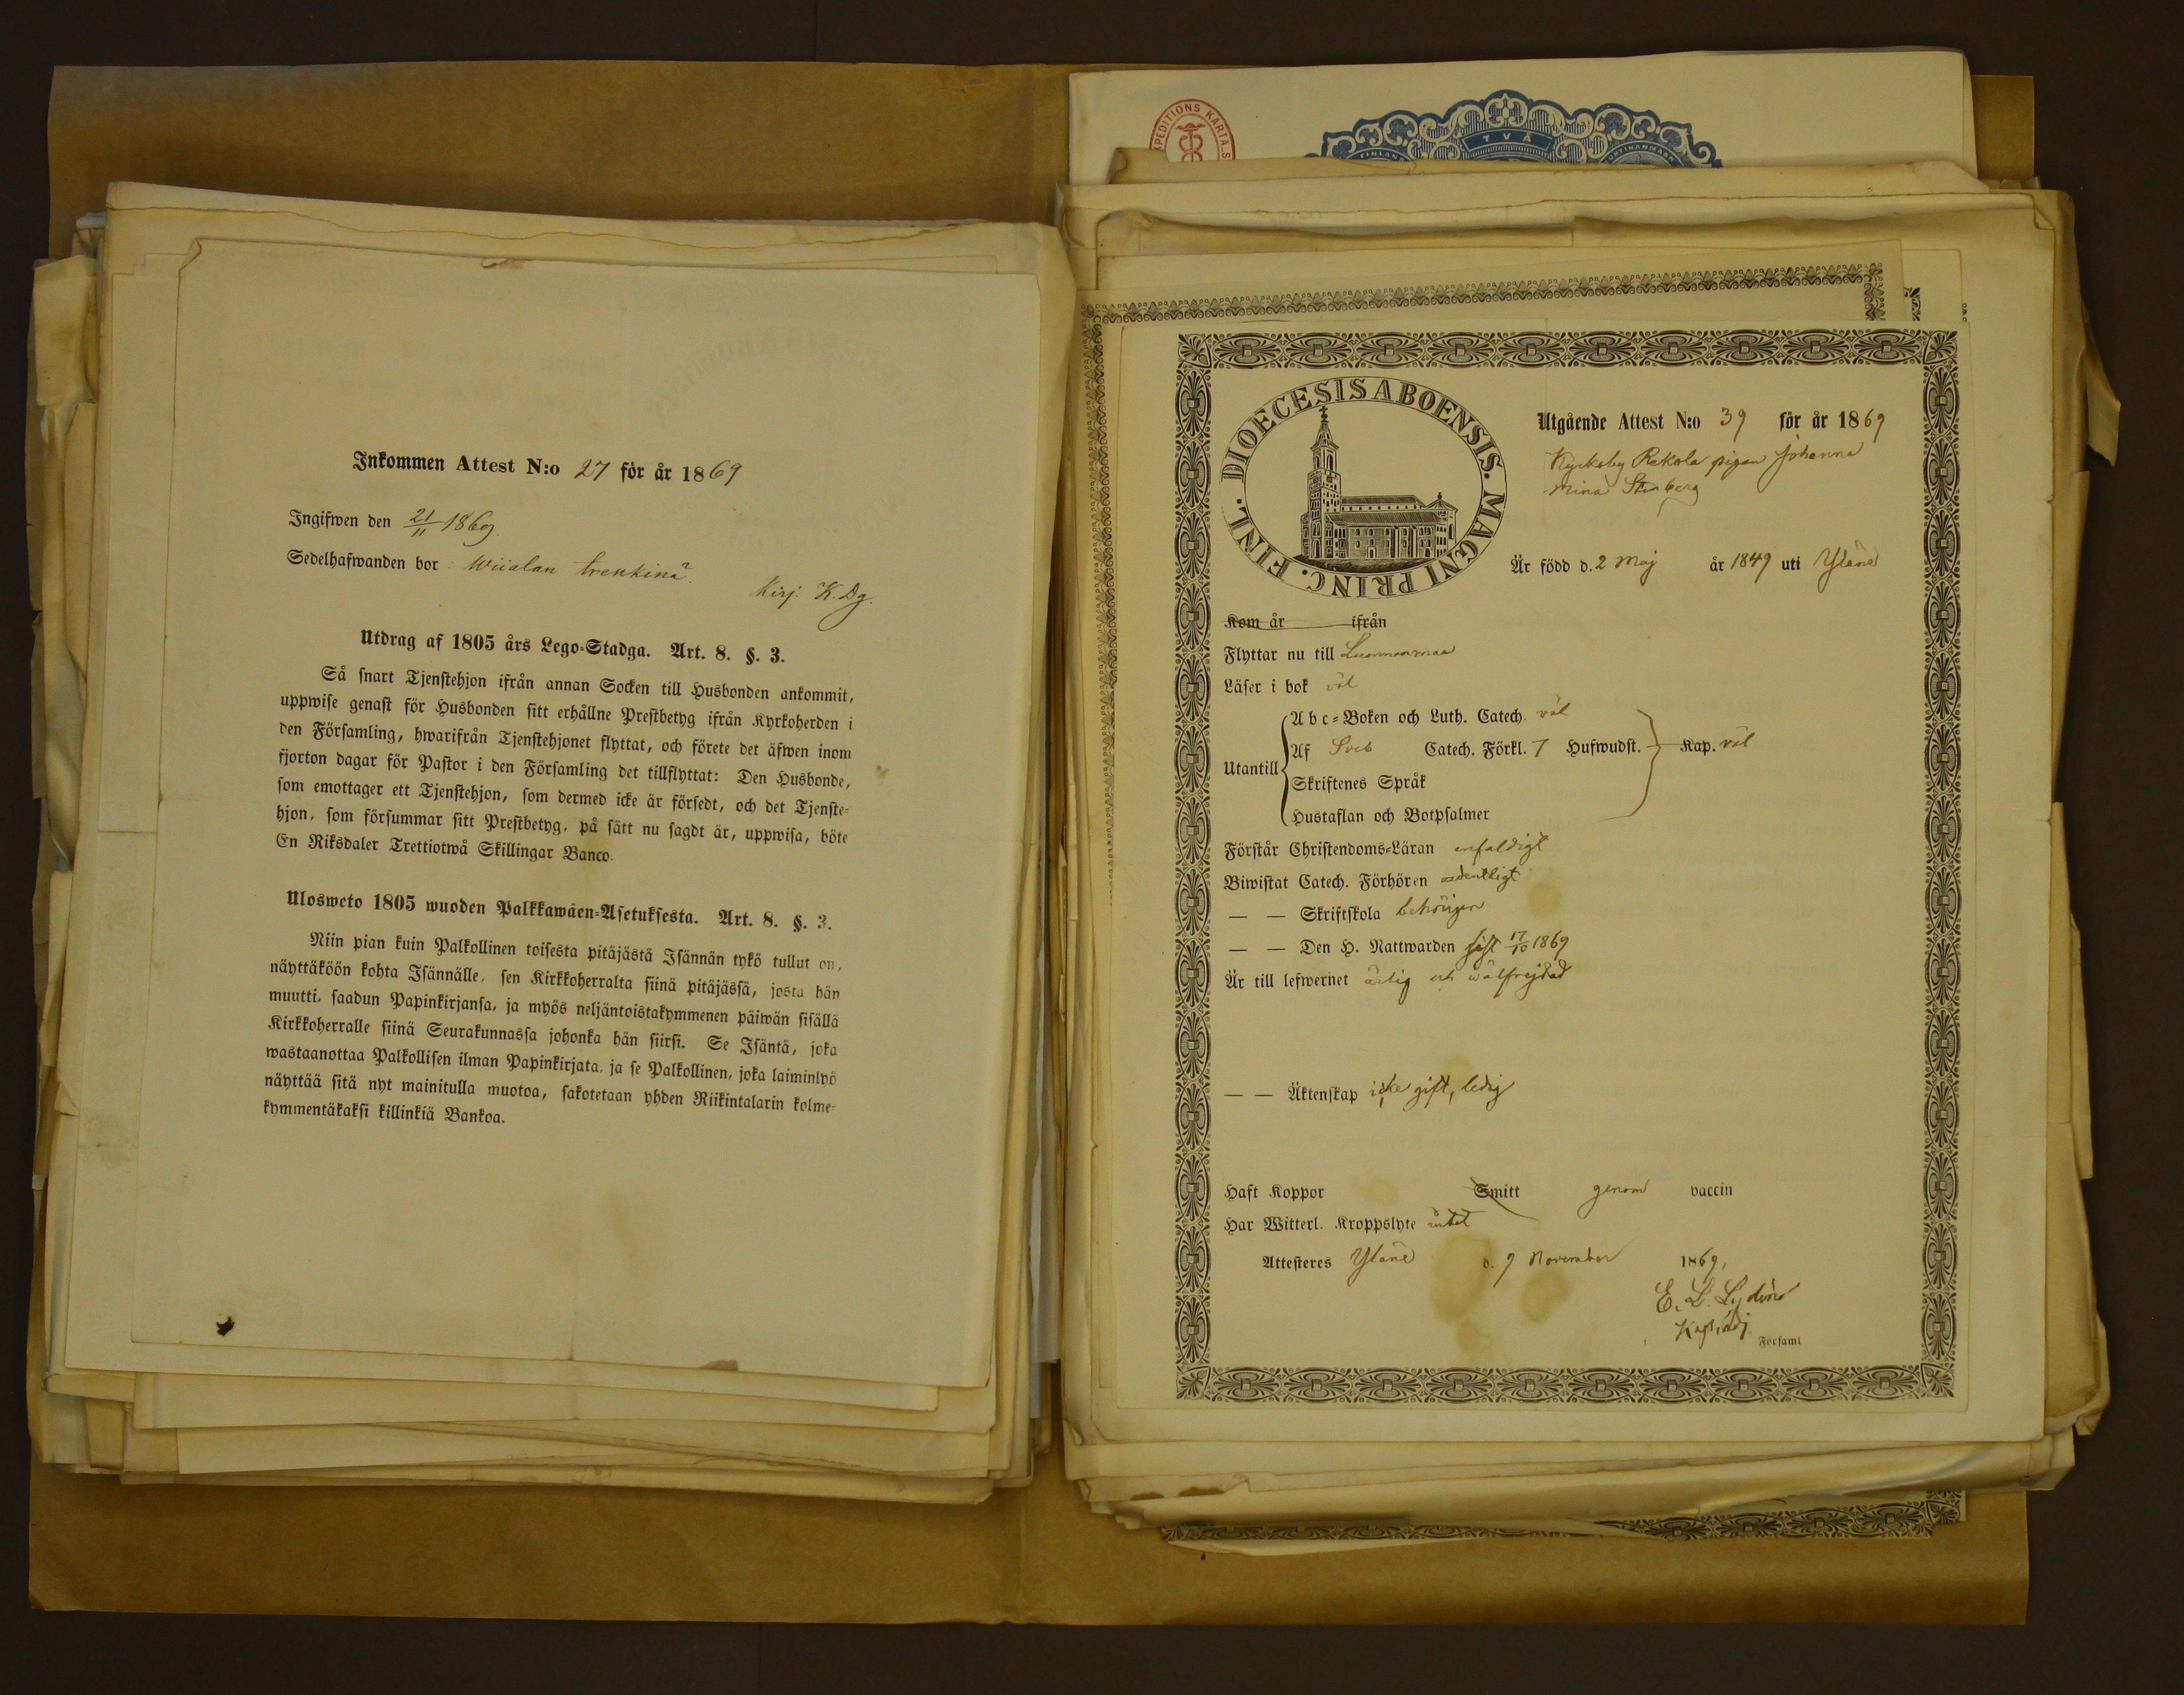 Inkommen Attest N:o 27 för år 1869
Ingifwen den 21/11 1869.
Sedelhafwanden bor: Wiialan trenkinä.
Kirj. K. Dg.
Utdrag af 1805 års Lego-Stadga. Art. 8. §. 3.
Så snart Tjenstehjon ifrån annan Socken till Husbonden ankommit,
uppwise genast för Husbonden sitt erhållne Prestbetyg ifrån Kyrkoherden i
den Församling, hwarifrån Tjenstehjonet flyttat, och förete det äfwen inom
fjorton dagar för Pastor i den Församling det tillflyttat: Den Husbonde,
som emottager ett Tjenstehjon, som dermed icke är försedt, och det Tjenste-
hjon, som försummar sitt Prestbetyg, på sätt nu sagdt är, uppwisa, böte
En Riksdaler Trettiotwå Skillingar Banco.
Ulosweto 1805 wuoden Palkkawäen-Asetuksesta. Art. 8. §. 3.
Niin pian kuin Palkollinen toisesta pitäjästä Isännän tykö tullut on,
näyttäköön kohta Isännälle, sen Kirkkoherralta siinä pitäjässä, josta hän
muutti, saadun Papinkirjansa, ja myös neljäntoistakymmenen päiwän sisällä
Kirkkoherralle siinä Seurakunnassa johonka hän siirsi. Se Isäntä, joka
wastaanottaa Palkollisen ilman Papinkirjata, ja se Palkollinen, joka laiminlyö
näyttää sitä nyt mainitulla muotoa, sakotetaan yhden Riikintalarin kolme-
kymmentäkaksi killinkiä Bankoa.
EXPEDITIONS KARTA
TVÅ
FINLAND
DIOECESIS ABOENSIS. MAGNI PRINC. FINL.
Utgående Attest N:o 39 för år 1869
Kyrkoby Rekola pigan Johanna
Mina Stenberg
Är född d. 2 Maj år 1849 uti Yläne
Kom år ifrån
Flyttar nu till Luonnonmaa
Läser i bok väl
Utantill
Abc-Boken och Luth. Catech. väl
Af Sveb Catech. Förkl. 7 Hufwudst. Kap. väl
Skriftenes Språk
Hustaflan och Botpsalmer
Förstår Christendoms-Läran enfaldigt
Biwistat Catech. Förhören ordentligt
— — Skriftskola behörigen
— — Den H. Nattwarden sist 17/10 1869
Är till lefwernet ärlig och wälfrejdad
— — Äktenskap icke gift, ledig
Haft Koppor Smitt genom vaccin
Har Witterl. Kroppslyte intet
Attesteres Yläne d. 9 November 1869,
E. L.
Kapl. adj.
Församl